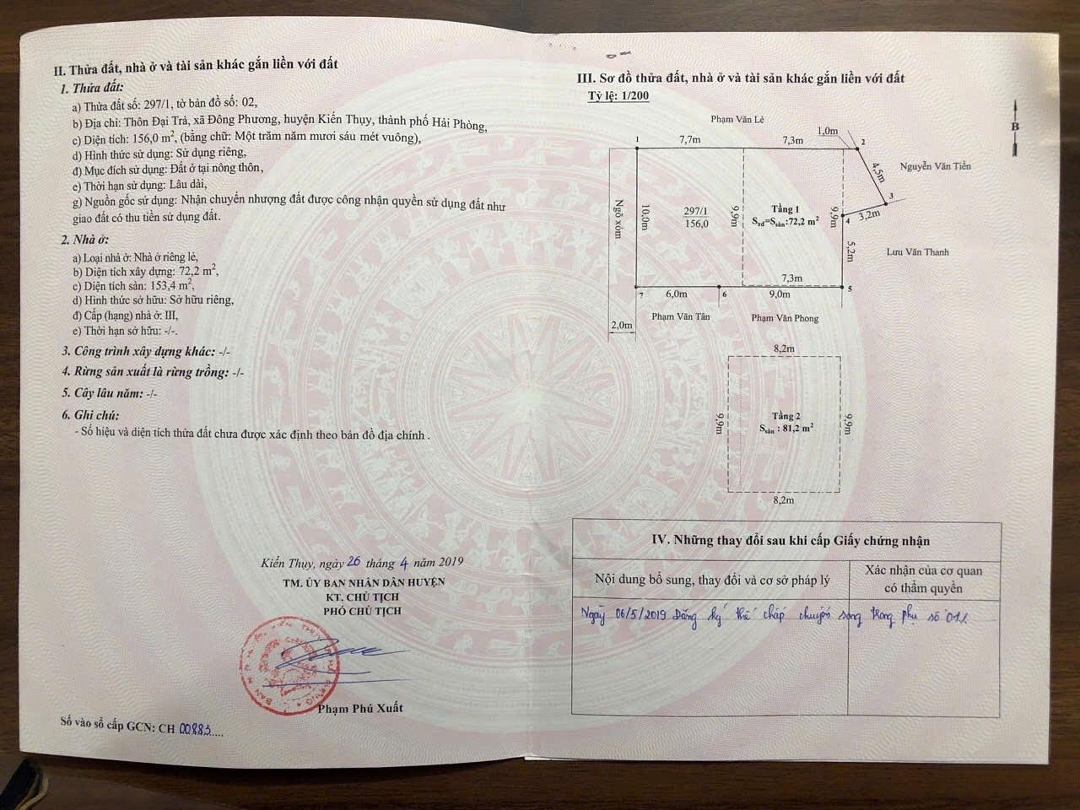 II. Thửa đất, nhà ở và tài sản khác gắn liền với đất
1. Thửa đất:
a) Thửa đất số: 297/1, tờ bản đồ số: 02,
b) Địa chỉ: Thôn Đại Trà, xã Đông Phương, huyện Kiến Thụy, thành phố Hải Phòng,
c) Diện tích: 156,0 m², (bằng chữ: Một trăm năm mươi sáu mét vuông),
d) Hình thức sử dụng: Sử dụng riêng,
đ) Mục đích sử dụng: Đất ở tại nông thôn,
e) Thời hạn sử dụng: Lâu dài,
g) Nguồn gốc sử dụng: Nhận chuyển nhượng đất được công nhận quyền sử dụng đất như
giao đất có thu tiền sử dụng đất.
2. Nhà ở:
a) Loại nhà ở: Nhà ở riêng lẻ,
b) Diện tích xây dựng: 72,2 m²,
c) Diện tích sàn: 153,4 m²,
d) Hình thức sở hữu: Sở hữu riêng,
đ) Cấp (hạng) nhà ở: III,
e) Thời hạn sở hữu: -/-.
3. Công trình xây dựng khác: -/-
4. Rừng sản xuất là rừng trồng: -/-
5. Cây lâu năm: -/-
6. Ghi chú:
- Số hiệu và diện tích thửa đất chưa được xác định theo bản đồ địa chính .
Kiến Thụy, ngày 26 tháng 4 năm 2019
TM. ỦY BAN NHÂN DÂN HUYỆN
KT. CHỦ TỊCH
PHÓ CHỦ TỊCH
Phạm Phú Xuất
Số vào sổ cấp GCN: CH 00883....
III. Sơ đồ thửa đất, nhà ở và tài sản khác gắn liền với đất
Tỷ lệ: 1/200
Phạm Văn Lê
B
1
7,7m
7,3m
1,0m
2
Nguyễn Văn Tiến
4,5m
3
3,2m
4
Ngõ xóm
10,0m
297/1
156,0
9,9m
Tầng 1
Sxd=Ssàn:72,2 m²
9,9m
5,2m
Lưu Văn Thanh
7,3m
7
6,0m
6
9,0m
5
2,0m
Phạm Văn Tân
Phạm Văn Phong
8,2m
9,9m
Tầng 2
Ssàn : 81,2 m²
9,9m
8,2m
IV. Những thay đổi sau khi cấp Giấy chứng nhận
Nội dung bổ sung, thay đổi và cơ sở pháp lý
Xác nhận của cơ quan
có thẩm quyền
Ngày 06/5/2019 Đăng ký thế chấp chuyển sang trang phụ số 01.